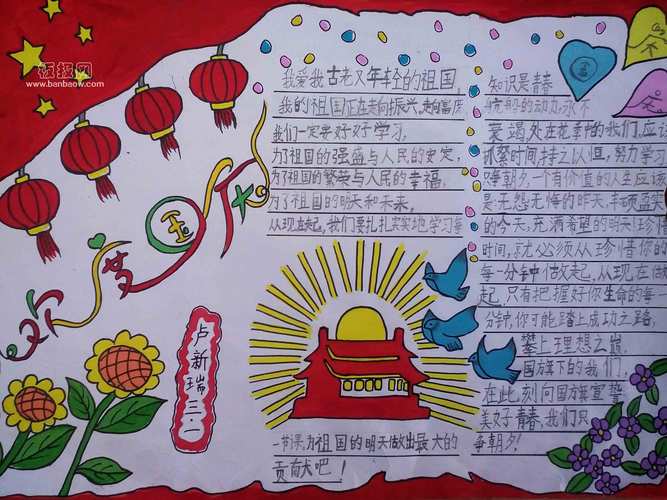 板报网
www.banbaow.com
欢度国庆
卢新瑞三.一
我爱我古老又年轻的祖国,
我的祖国正在走向振兴,走向富庶
我们一定要好好学习,
为了祖国的强盛与人民的安定,
为了祖国的繁荣与人民的幸福,
为了祖国的明天和未来,
从现在起,我们要扎扎实实地学习每
一节课,为祖国的明天做出最大的
贡献吧!
知识是青春
航船的动力,永不
衰竭处在花季的我们,应该
抓紧时间,持之以恒,努力学习
争朝夕,一个有价值的人生应该
是无怨无悔的昨天,丰硕盈实
的今天,充满希望的明天!珍惜
时间,就必须从珍惜你的
每一分钟做起,从现在做
起,只有把握好你生命的每
分钟,你可能踏上成功之路,
攀上理想之巅,
国旗下的我们,
在此刻向国旗宣誓
美好青春,我们只
争朝夕!